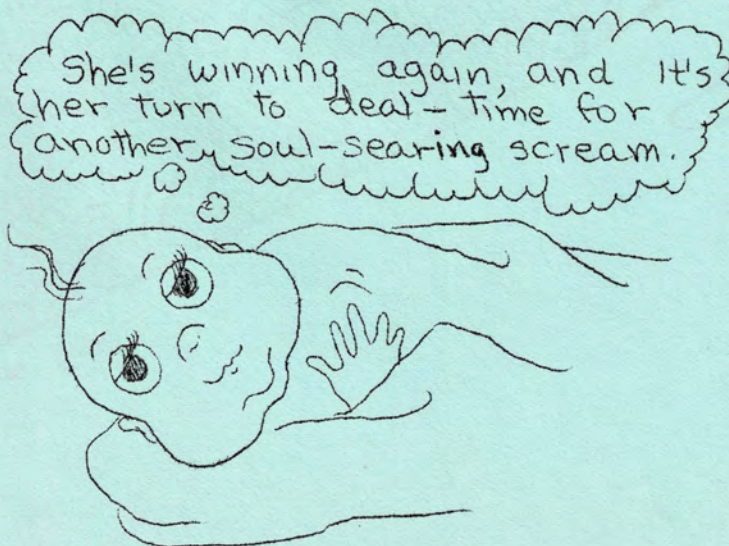 She's winning again, and it's
her turn to deal - time for
another soul-searing scream.